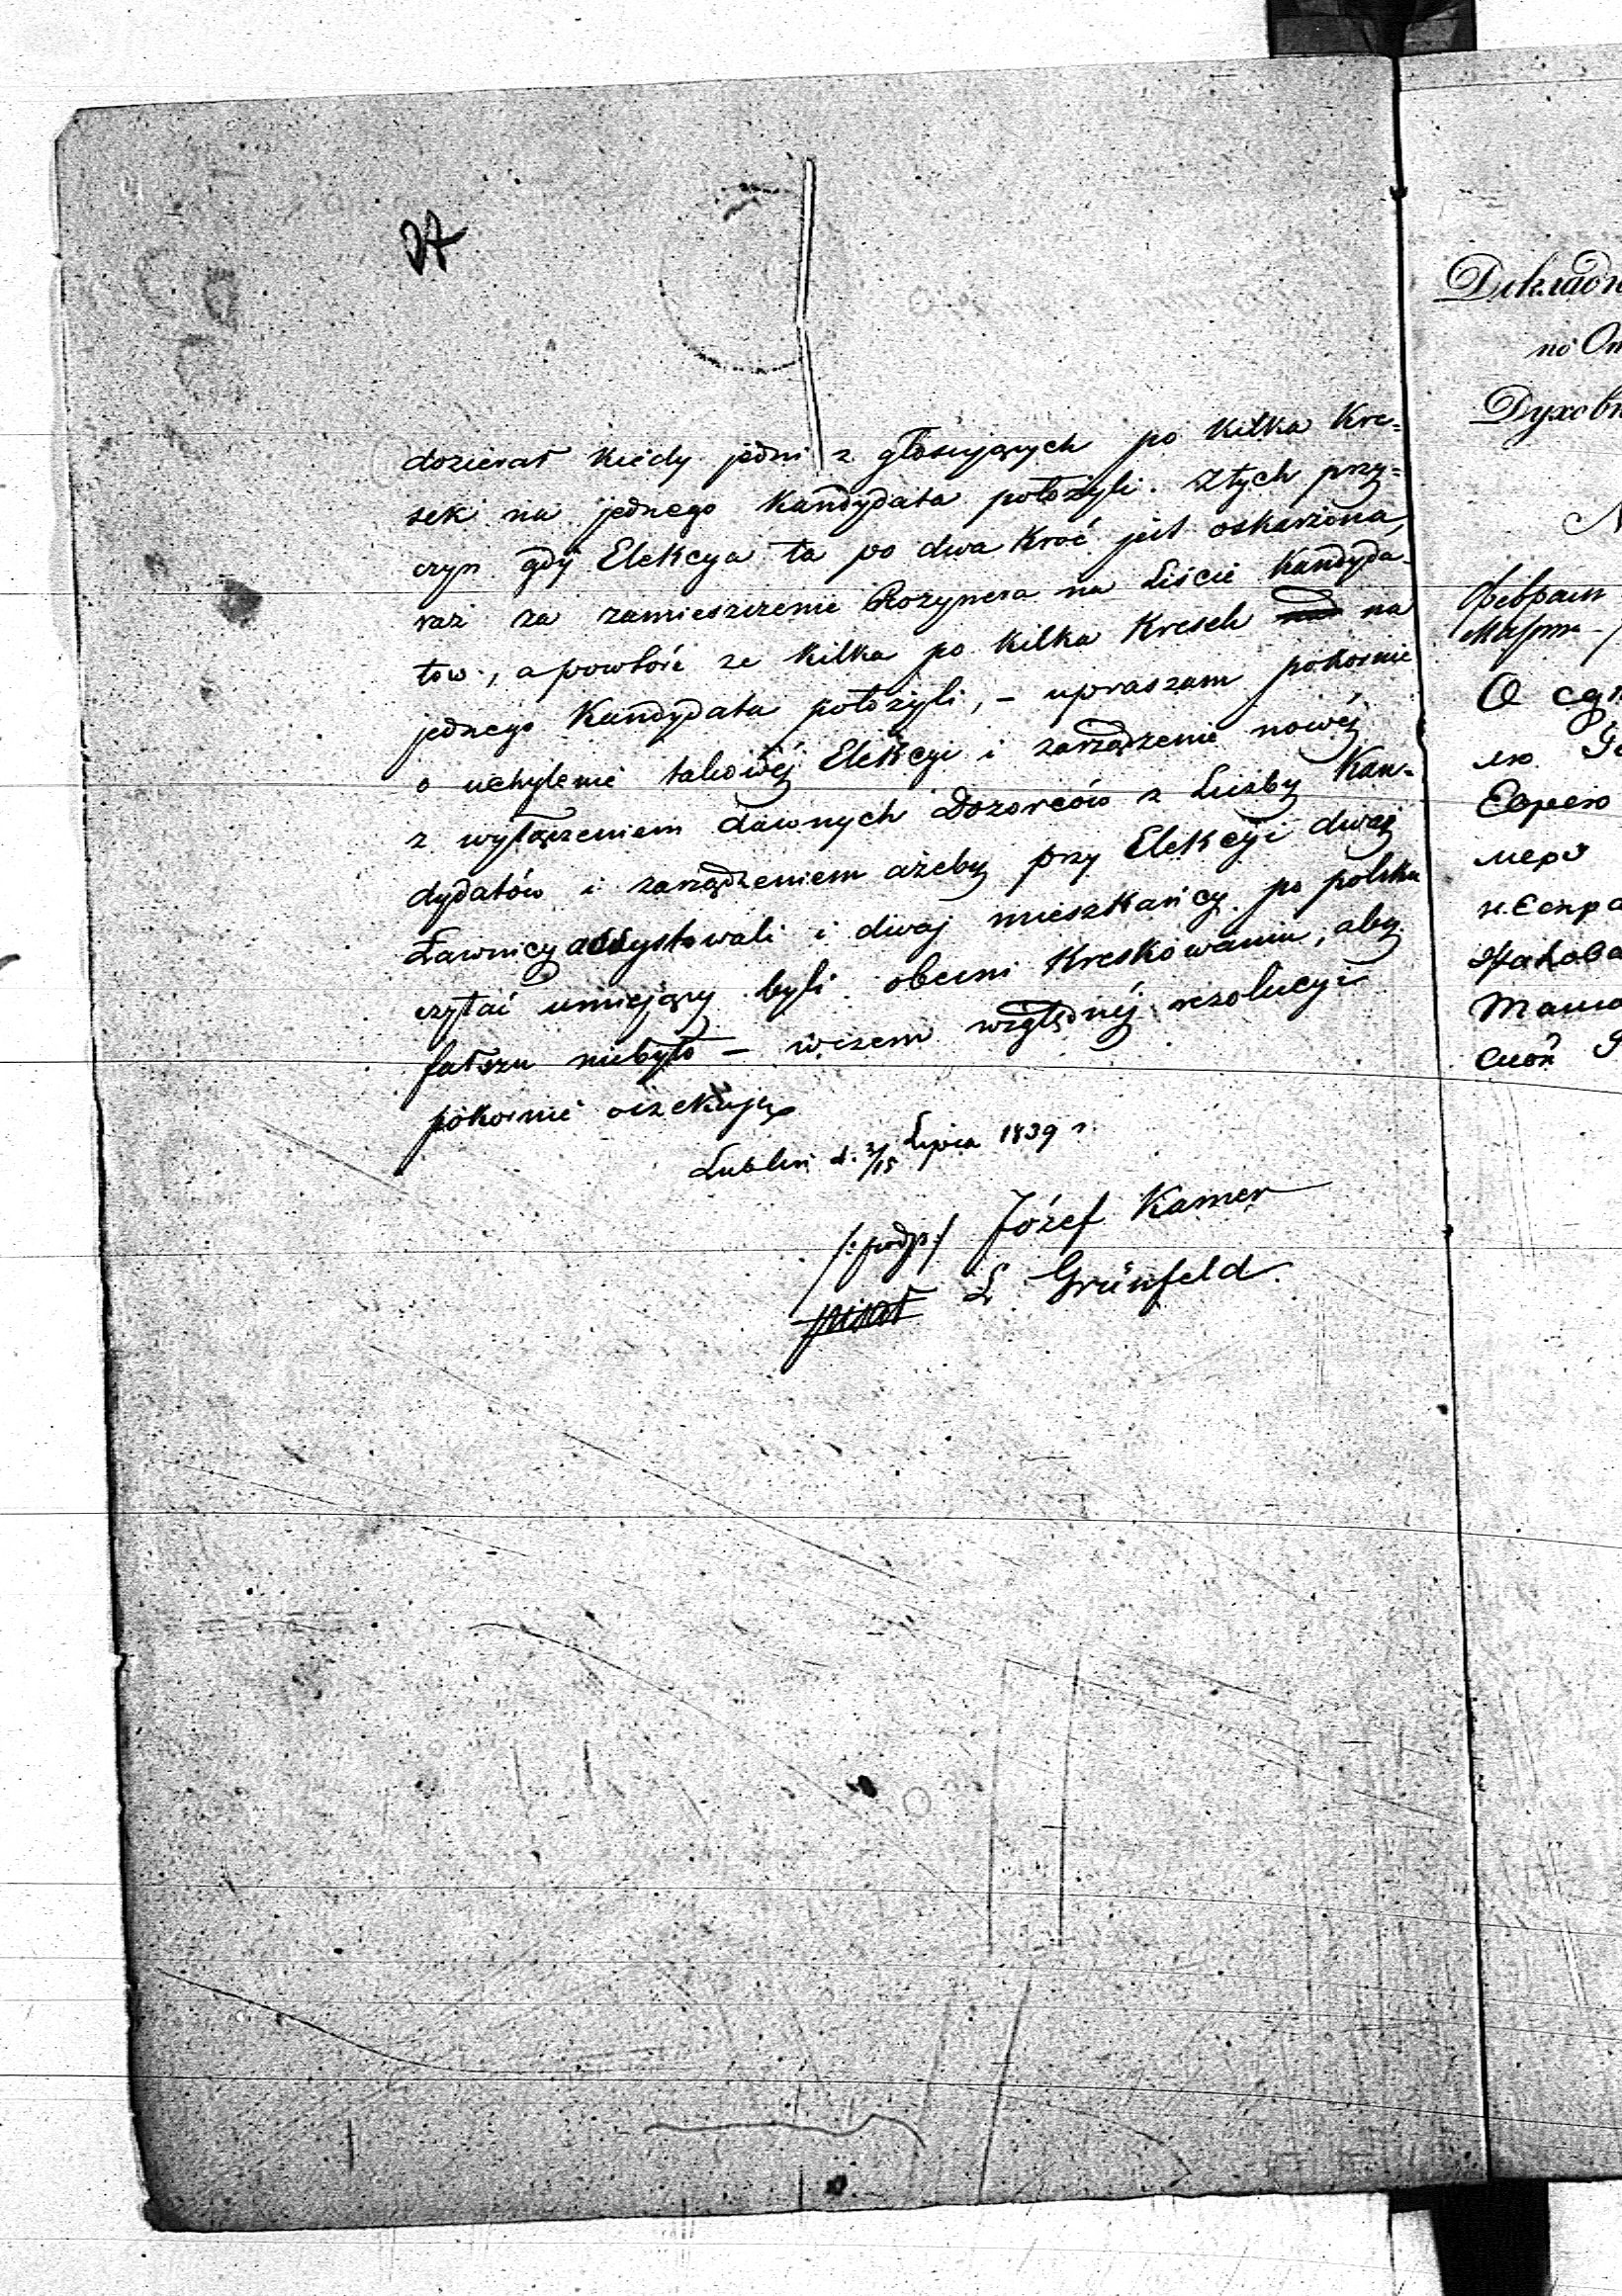 27
dozierał kiedy jedni z głosujących po kilka kre=
sek na jednego kandydata położyli. Z tych przy=
czyn gdy Elekcya ta po dwa kroć jest oskarżona,
raz za zamieszczenie Rozynera na Liście Kandyda-
tow, a powtóre ze kilka po kilka Kresek na
jednego Kandydata położyli, – upraszam pokornie
o uchylenie takowéj Elekcyi i zarządzenie nowéj
z wyłączeniem dawnych Dozorców z Liczby Kan-
dydatów i zarządzeniem ażeby przy Elekcyi dwaj
Ławnicy assystowali i dwaj mieszkańcy po polsku
czytać umiejący byli obecni Kreskowaniu, aby
fałszu niebyło – wczem względnéj rezolucyi
pokornie oczekuję
Lublin d. 3/15 Lipca 1839 r.
/:podp:/ Józef Kamer
L. Grünfeld
Докладн
по От
Духовн
О
Еврею
мера
Таш
ской